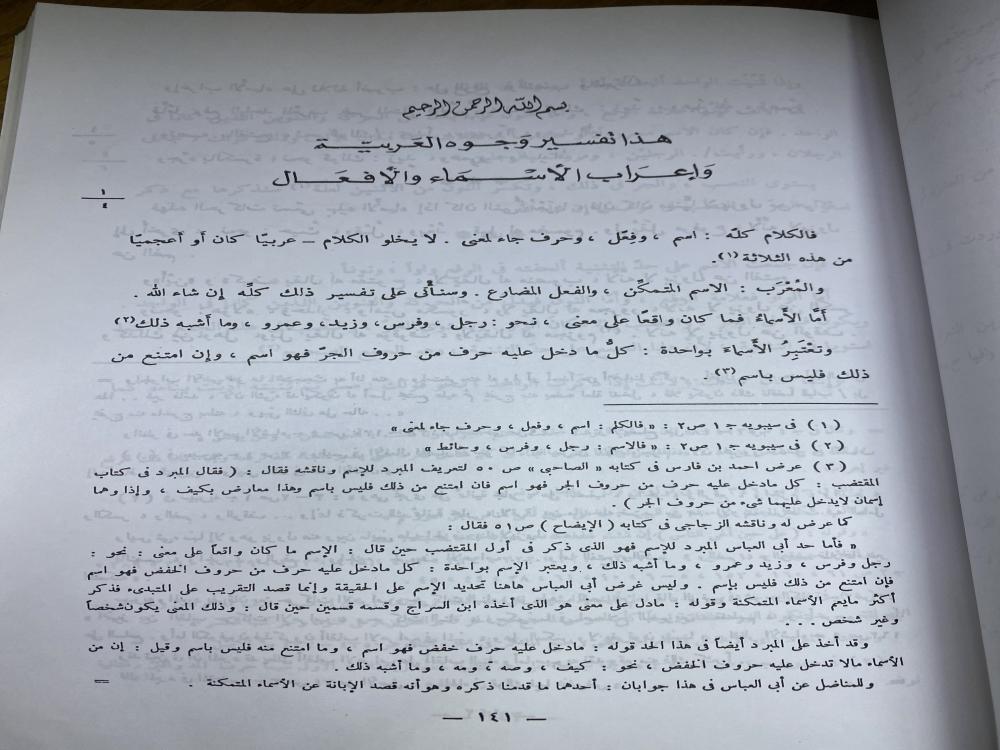 بسم الله الرحمن الرحيم
هذا تفسير وجوه العربيّة
وَإعراب الأسماء والأفعال
١
٤
فالكلام كلّه : اسم ، وفِعْل ، وحرف جاء لمعنى . لا يخلو الكلام – عربيّا كان أو أعجميّا
من هذه الثلاثة (١).
والمُعْرَب : الاسم المتمكّن ، والفعل المضارع . وسنأْتى على تفسير ذلك كلّه إن شاء الله .
أمّا الأَسماءُ فما كان واقعًا على معنى ، نحو : رجل ، وفرس ، وزيد ، وعمرو ، وما أشبه ذلك (٢)
وتعْتَبِرُ الأَسماءَ بواحدة : كلُّ ما دخل عليه حرف من حروف الجرّ فهو اسم ، وإن امتنع من
ذلك فليس باسم (٣) .
( ١ ) فى سيبويه جـ ١ ص ٢ : « فالكلم : اسم ، وفعل ، وحرف جاء لمعنى »
( ٢ ) فى سيبويه جـ ١ ص ٢ : « فالاسم : رجل ، وفرس ، وحائط »
( ٣ ) عرض احمد بن فارس فى كتابه « الصاحبى » ص ٥٠ لتعريف المبرد للإسم وناقشه فقال : ( فقال المبرد فى كتاب
المقتضب : كل مادخل عليه حرف من حروف الجر فهو اسم فان امتنع من ذلك فليس باسم وهذا معارض بكيف ، وإذا وهما
إسمان لايدخل عليهما شىء من حروف الجر )
كما عرض له وناقشه الزجاجى فى كتابه ( الإيضاح ) ص ٥١ فقال :
« فأما حد أبى العباس المبرد للإسم فهو الذى ذكر فى أول المقتضب حين قال : الإسم ما كان واقعاً على معنى : نحو :
رجل وفرس ، وزيد وعمرو ، وما أشبه ذلك ، ويعتبر الإسم بواحدة : كل مادخل عليه حرف من حروف الخفض فهو اسم
فإن امتنع من ذلك فليس بإسم . وليس غرض أبى العباس هاهنا تحديد الإسم على الحقيقة وإنما قصد التقريب على المبتدىء فذكر
أكثر مايعم الأسماء المتمكنة وقوله : مادل على معنى هو الذى أخذه ابن السراج وقسمه قسمين حين قال : وذلك المعنى يكون شخصاً
وغير شخص . . .
وقد أخذ على المبرد أيضاً فى هذا الحد قوله : مادخل عليه حرف خفض فهو اسم ، وما امتنع منه فليس باسم وقيل : إن من
الأسماء مالا تدخل عليه حروف الخفض ، نحو : كيف ، وصه ، ومه ، وما أشبه ذلك .
وللمناضل عن أبى العباس فى هذا جوابان : أحدهما ما قدمنا ذكره وهو أنه قصد الإبانة عن الأسماء المتمكنة . =
— ١٤١ —